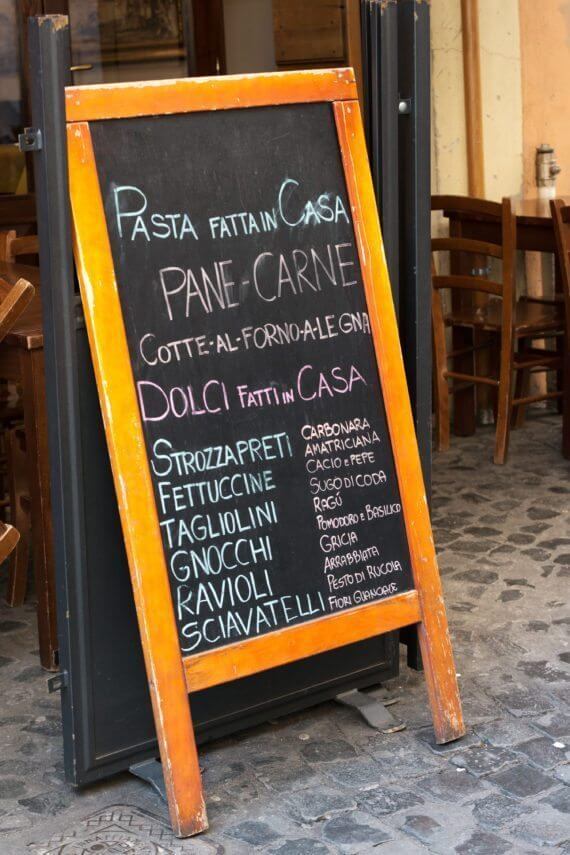 PASTA FATTA IN CASA
PANE-CARNE
COTTE-AL-FORNO-A-LEGNA
DOLCI FATTI IN CASA
STROZZAPRETI
FETTUCCINE
TAGLIOLINI
GNOCCHI
RAVIOLI
SCIAVATELLI
CARBONARA
AMATRICIANA
CACIO e PEPE
SUGO DI CODA
RAGÚ
POMODORO E BASILICO
GRICIA
ARRABBIATA
PESTO DI RUCOLA
FIORI GUANCIALE